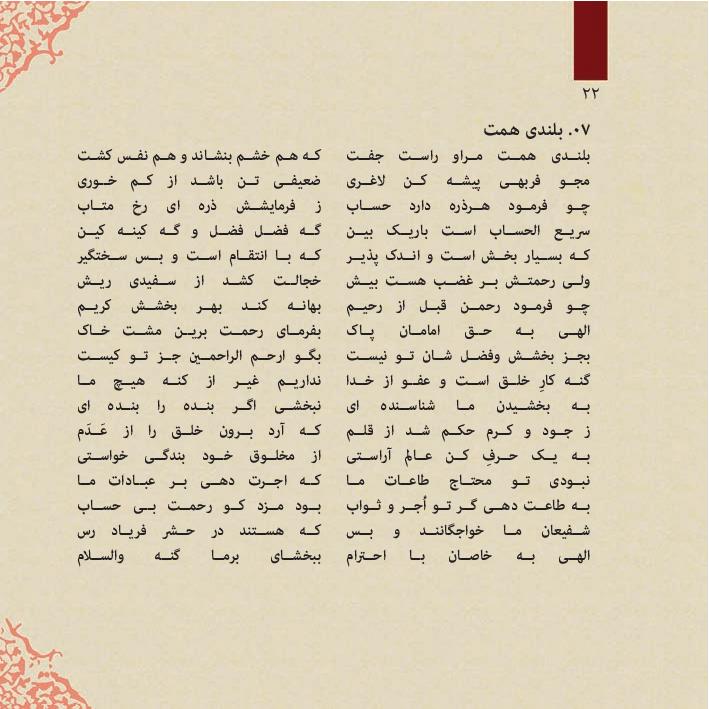 ۲۲
۰۷. بلندی همت
بلندی همت مراو راست جفت که هم خشم بنشاند و هم نفس کشت
مجو فربهی پیشه کن لاغری ضعیفی تن باشد از کم خوری
چو فرمود هرذره دارد حساب ز فرمایشش ذره ای رخ متاب
سریع الحساب است باریک بین گه فضل فضل و گه کینه کین
که بسیار بخش است و اندک پذیر که با انتقام است و بس سختگیر
ولی رحمتش بر غضب هست بیش خجالت کشد از سفیدی ریش
چو فرمود رحمن قبل از رحیم بهانه کند بهر بخشش کریم
الهی به حق امامان پاک بفرمای رحمت برین مشت خاک
بجز بخشش وفضل شان تو نیست بگو ارحم الراحمین جز تو کیست
گنه کارِ خلق است و عفو از خدا نداریم غیر از گنه هیچ ما
به بخشیدن ما شناسنده ای نبخشی اگر بنده را بنده ای
ز جود و کرم حکم شد از قلم که آرد برون خلق را از عَدَم
به یک حرفِ کن عالم آراستی از مخلوق خود بندگی خواستی
نبودی تو محتاج طاعات ما که اجرت دهی بر عبادات ما
به طاعت دهی گر تو اُجر و ثواب بود مزد کو رحمت بی حساب
شفیعان ما خواجگانند و بس که هستند در حشر فریاد رس
الهی به خاصان با احترام ببخشای برما گنه والسلام